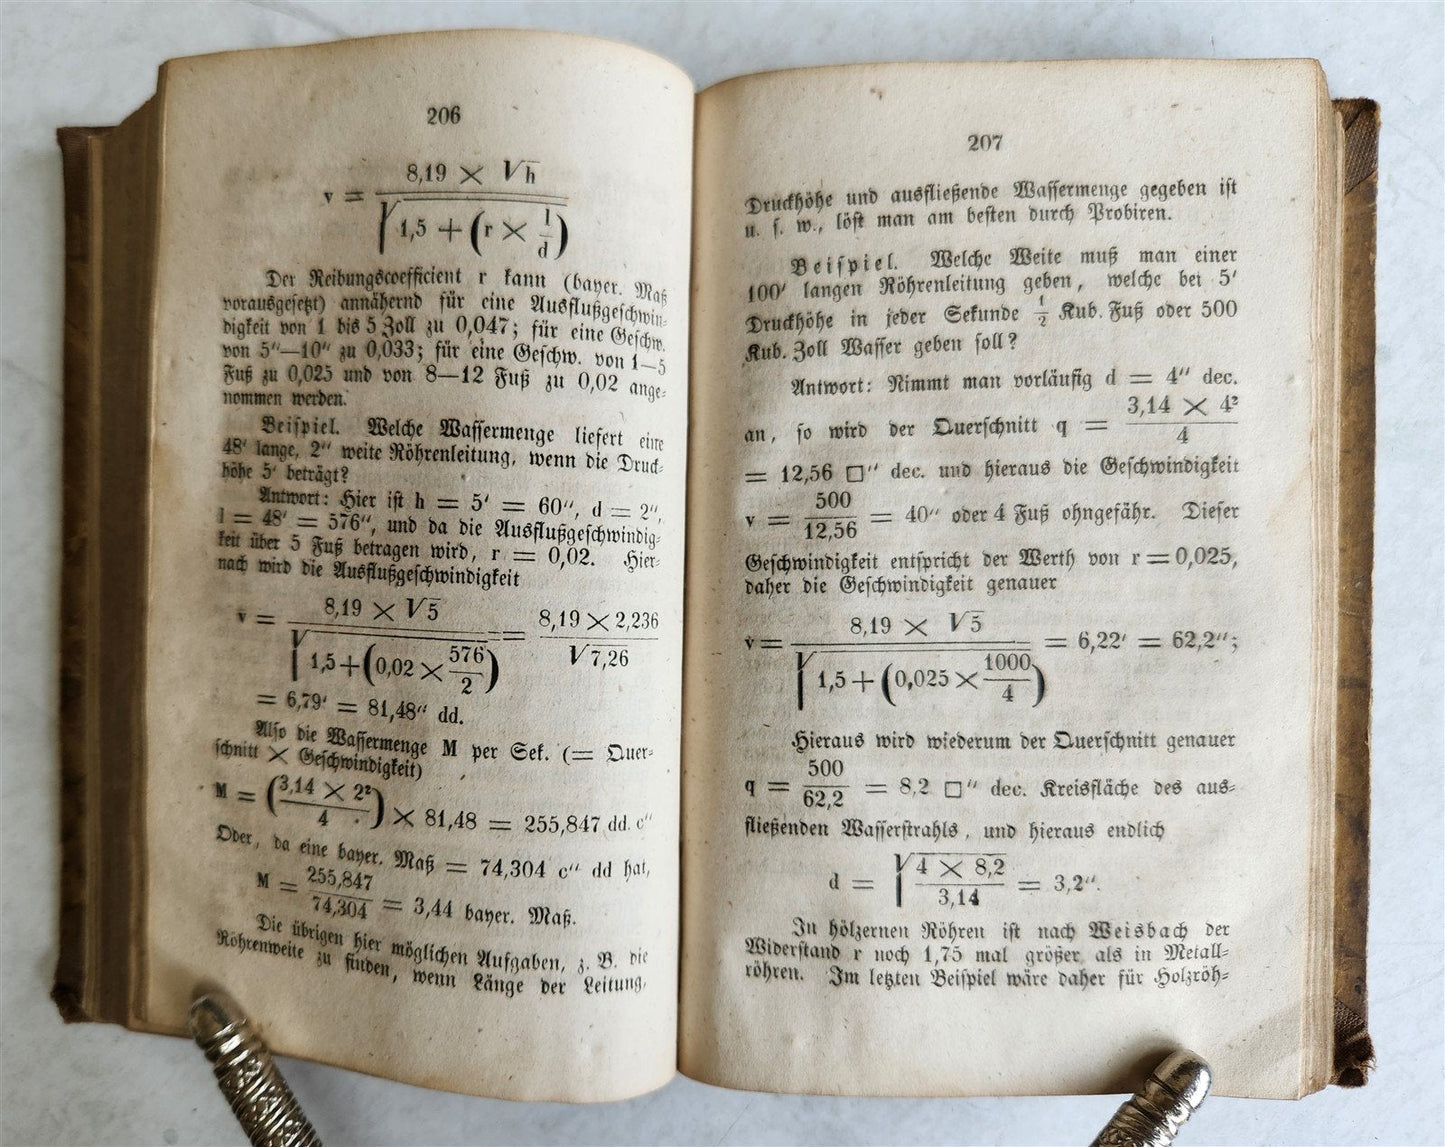 206
v = 8,19 × √h / √1,5 + (r × l/d)
Der Reibungscoefficient r kann (bayer. Maß
vorausgesetzt) annähernd für eine Ausflußgeschwin-
digkeit von 1 bis 5 Zoll zu 0,047; für eine Geschw.
von 5"—10" zu 0,033; für eine Geschw. von 1—5
Fuß zu 0,025 und von 8—12 Fuß zu 0,02 ange-
nommen werden.
Beispiel. Welche Wassermenge liefert eine
48' lange, 2" weite Röhrenleitung, wenn die Druck-
höhe 5' beträgt?
Antwort: Hier ist h = 5' = 60", d = 2",
l = 48' = 576", und da die Ausflußgeschwindig-
keit über 5 Fuß betragen wird, r = 0,02. Hier-
nach wird die Ausflußgeschwindigkeit
v = 8,19 × √5 / √1,5 + (0,02 × 576/2) = 8,19 × 2,236 / √7,26
= 6,79' = 81,48" dd.
Also die Wassermenge M per Sek. (= Quer-
schnitt × Geschwindigkeit)
M = (3,14 × 2² / 4) × 81,48 = 255,847 dd. c"
Oder, da eine bayer. Maß = 74,304 c" dd hat,
M = 255,847 / 74,304 = 3,44 bayer. Maß.
Die übrigen hier möglichen Aufgaben, z. B. die
Röhrenweite zu finden, wenn Länge der Leitung,
207
Druckhöhe und ausfließende Wassermenge gegeben ist
u. s. w., löst man am besten durch Probiren.
Beispiel. Welche Weite muß man einer
100' langen Röhrenleitung geben, welche bei 5'
Druckhöhe in jeder Sekunde ½ Kub. Fuß oder 500
Kub. Zoll Wasser geben soll?
Antwort: Nimmt man vorläufig d = 4" dec.
an, so wird der Querschnitt q = 3,14 × 4² / 4
= 12,56 □" dec. und hieraus die Geschwindigkeit
v = 500 / 12,56 = 40" oder 4 Fuß ohngefähr. Dieser
Geschwindigkeit entspricht der Werth von r = 0,025,
daher die Geschwindigkeit genauer
v = 8,19 × √5 / √1,5 + (0,025 × 1000/4) = 6,22' = 62,2";
Hieraus wird wiederum der Querschnitt genauer
q = 500 / 62,2 = 8,2 □" dec. Kreisfläche des aus-
fließenden Wasserstrahls, und hieraus endlich
d = √4 × 8,2 / 3,14 = 3,2".
In hölzernen Röhren ist nach Weisbach der
Widerstand r noch 1,75 mal größer als in Metall-
röhren. Im letzten Beispiel wäre daher für Holzröh-